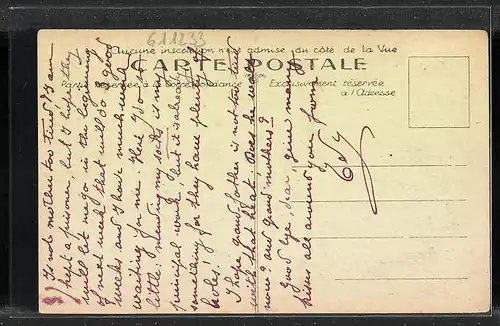 611233
Aucune inscription n'est admise du côté de la Vue
CARTE POSTALE
Partie réservée à la Correspondance
Exclusivement réservée
à l'Adresse
Is not mother too tired? I am
kept a prisoner, but I hope they
will let me go in the beginning
of next week, that will do good
weeks and I have much work
waiting for me. Here I do
little, mending my socks is my
principal work, but it is already
something for they have plenty of
holes!
I hope grand father is not too tired
with that heat. Does he walk
none? and grand mother?
Good bye, dear, give many
kisses all around you from